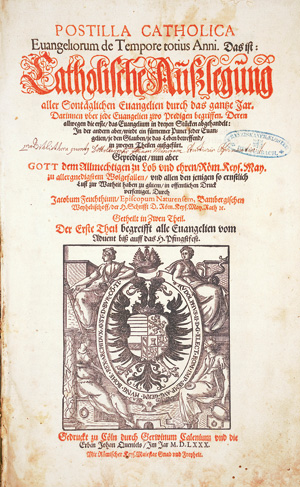 POSTILLA CATHOLICA
Euangeliorum de Tempore totius Anni. Das ist:
Catholische Außlegung
aller Sontäglichen Euangelien durch das gantze Jar.
Darinnen vber jede Euangelien zwo Predigen begriffen. Deren
allwegen die erste / das Euangelium in dreyen Stücken abgehandelt:
In der andern aber / wirdt ein fürnemer Punct jeder Euan-
gelien / so den Glauben
in zweyen Theilen außgefürt.
Geprediget / nun aber
GOTT dem Allmechtigen zu Lob vnd ehren / Röm. Key. May.
zu allergnedigstem Wolgefallen / vnd allen den jenigen so ernstlich
lust zur Warheit haben zu gütem / in offentlichen Druck
verfertiget. Durch
Jacobum Feuchthium / Episcopum Naturensem, Bambergischen
Weyhebischoff / der H. Schrifft D. Röm. Key. May. Rath ꝛc.
Getheilt in Zwen Theil.
Der Erste Theil begreifft alle Euangelien vom
Aduent biß auff das H. Pfingstfest.
Gedruckt zu Cöln durch Gerwinum Calenium vnd die
Erben Johan Quentels / Im Jar M.D.LXXX.
Mit Römischer Key. Maiestat Gnad vnd Freyheit.